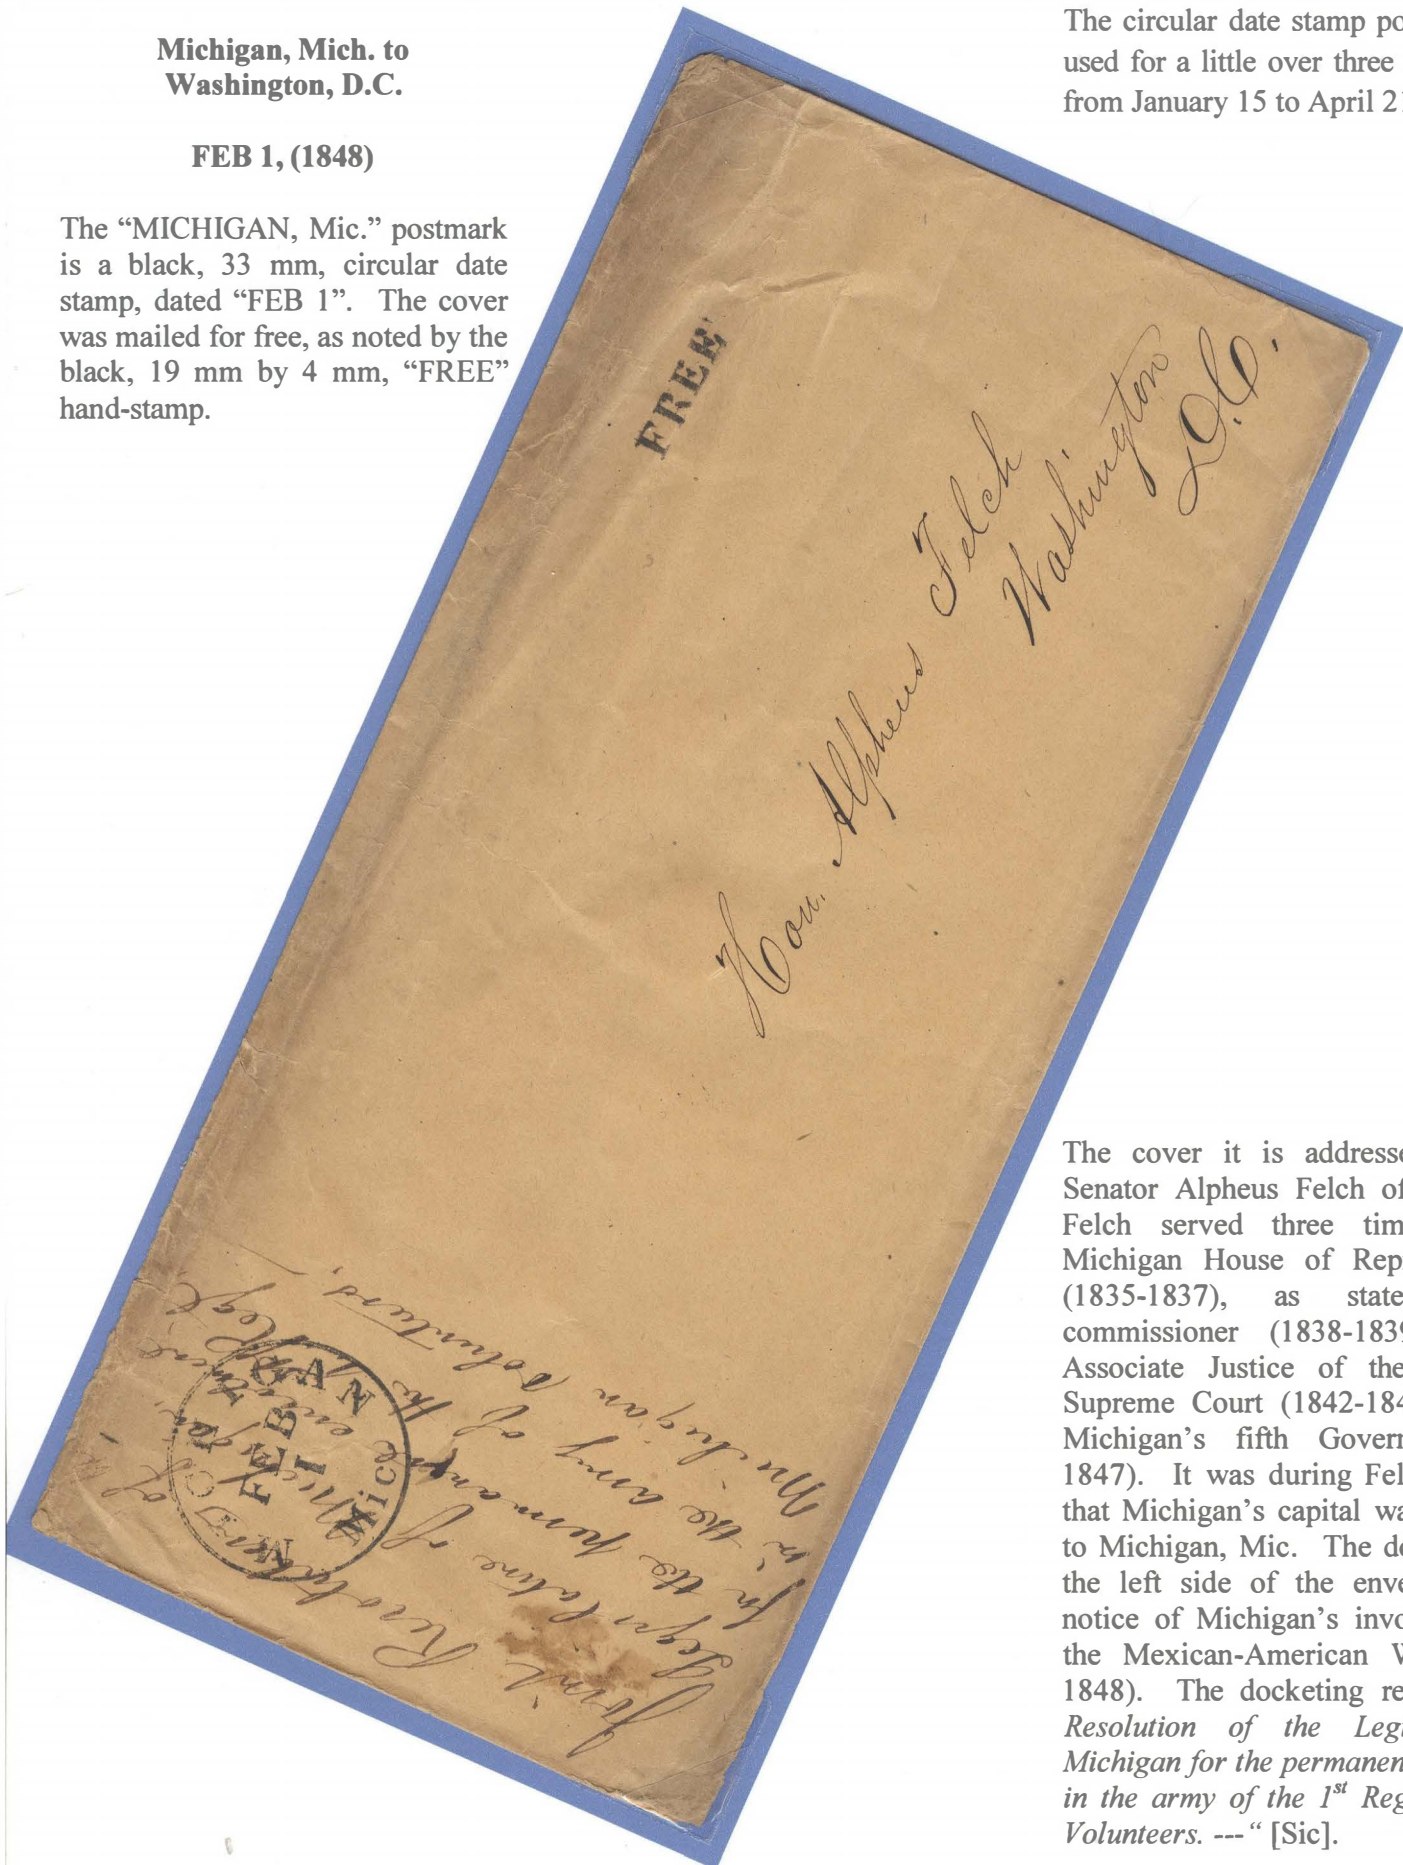 Michigan, Mich. to
Washington, D.C.
FEB 1, (1848)
The “MICHIGAN, Mic.” postmark
is a black, 33 mm, circular date
stamp, dated “FEB 1”. The cover
was mailed for free, as noted by the
black, 19 mm by 4 mm, “FREE”
hand-stamp.
The circular date stamp po
used for a little over three
from January 15 to April 21
FREE
Hon. Alpheus Felch
Washington
D.C.
MICHIGAN
FEB
1
Mic
Joint Resolution of
Legislature of Michigan,
for the permanent
in the army of the 1 Regt
Michigan Volunteers.
The cover it is addresse
Senator Alpheus Felch of
Felch served three tim
Michigan House of Rep
(1835-1837), as state
commissioner (1838-1839
Associate Justice of the
Supreme Court (1842-184
Michigan’s fifth Govern
1847). It was during Fel
that Michigan’s capital wa
to Michigan, Mic. The do
the left side of the enve
notice of Michigan’s invo
the Mexican-American W
1848). The docketing re
Resolution of the Leg
Michigan for the permanen
in the army of the 1st Reg
Volunteers. ---“ [Sic].